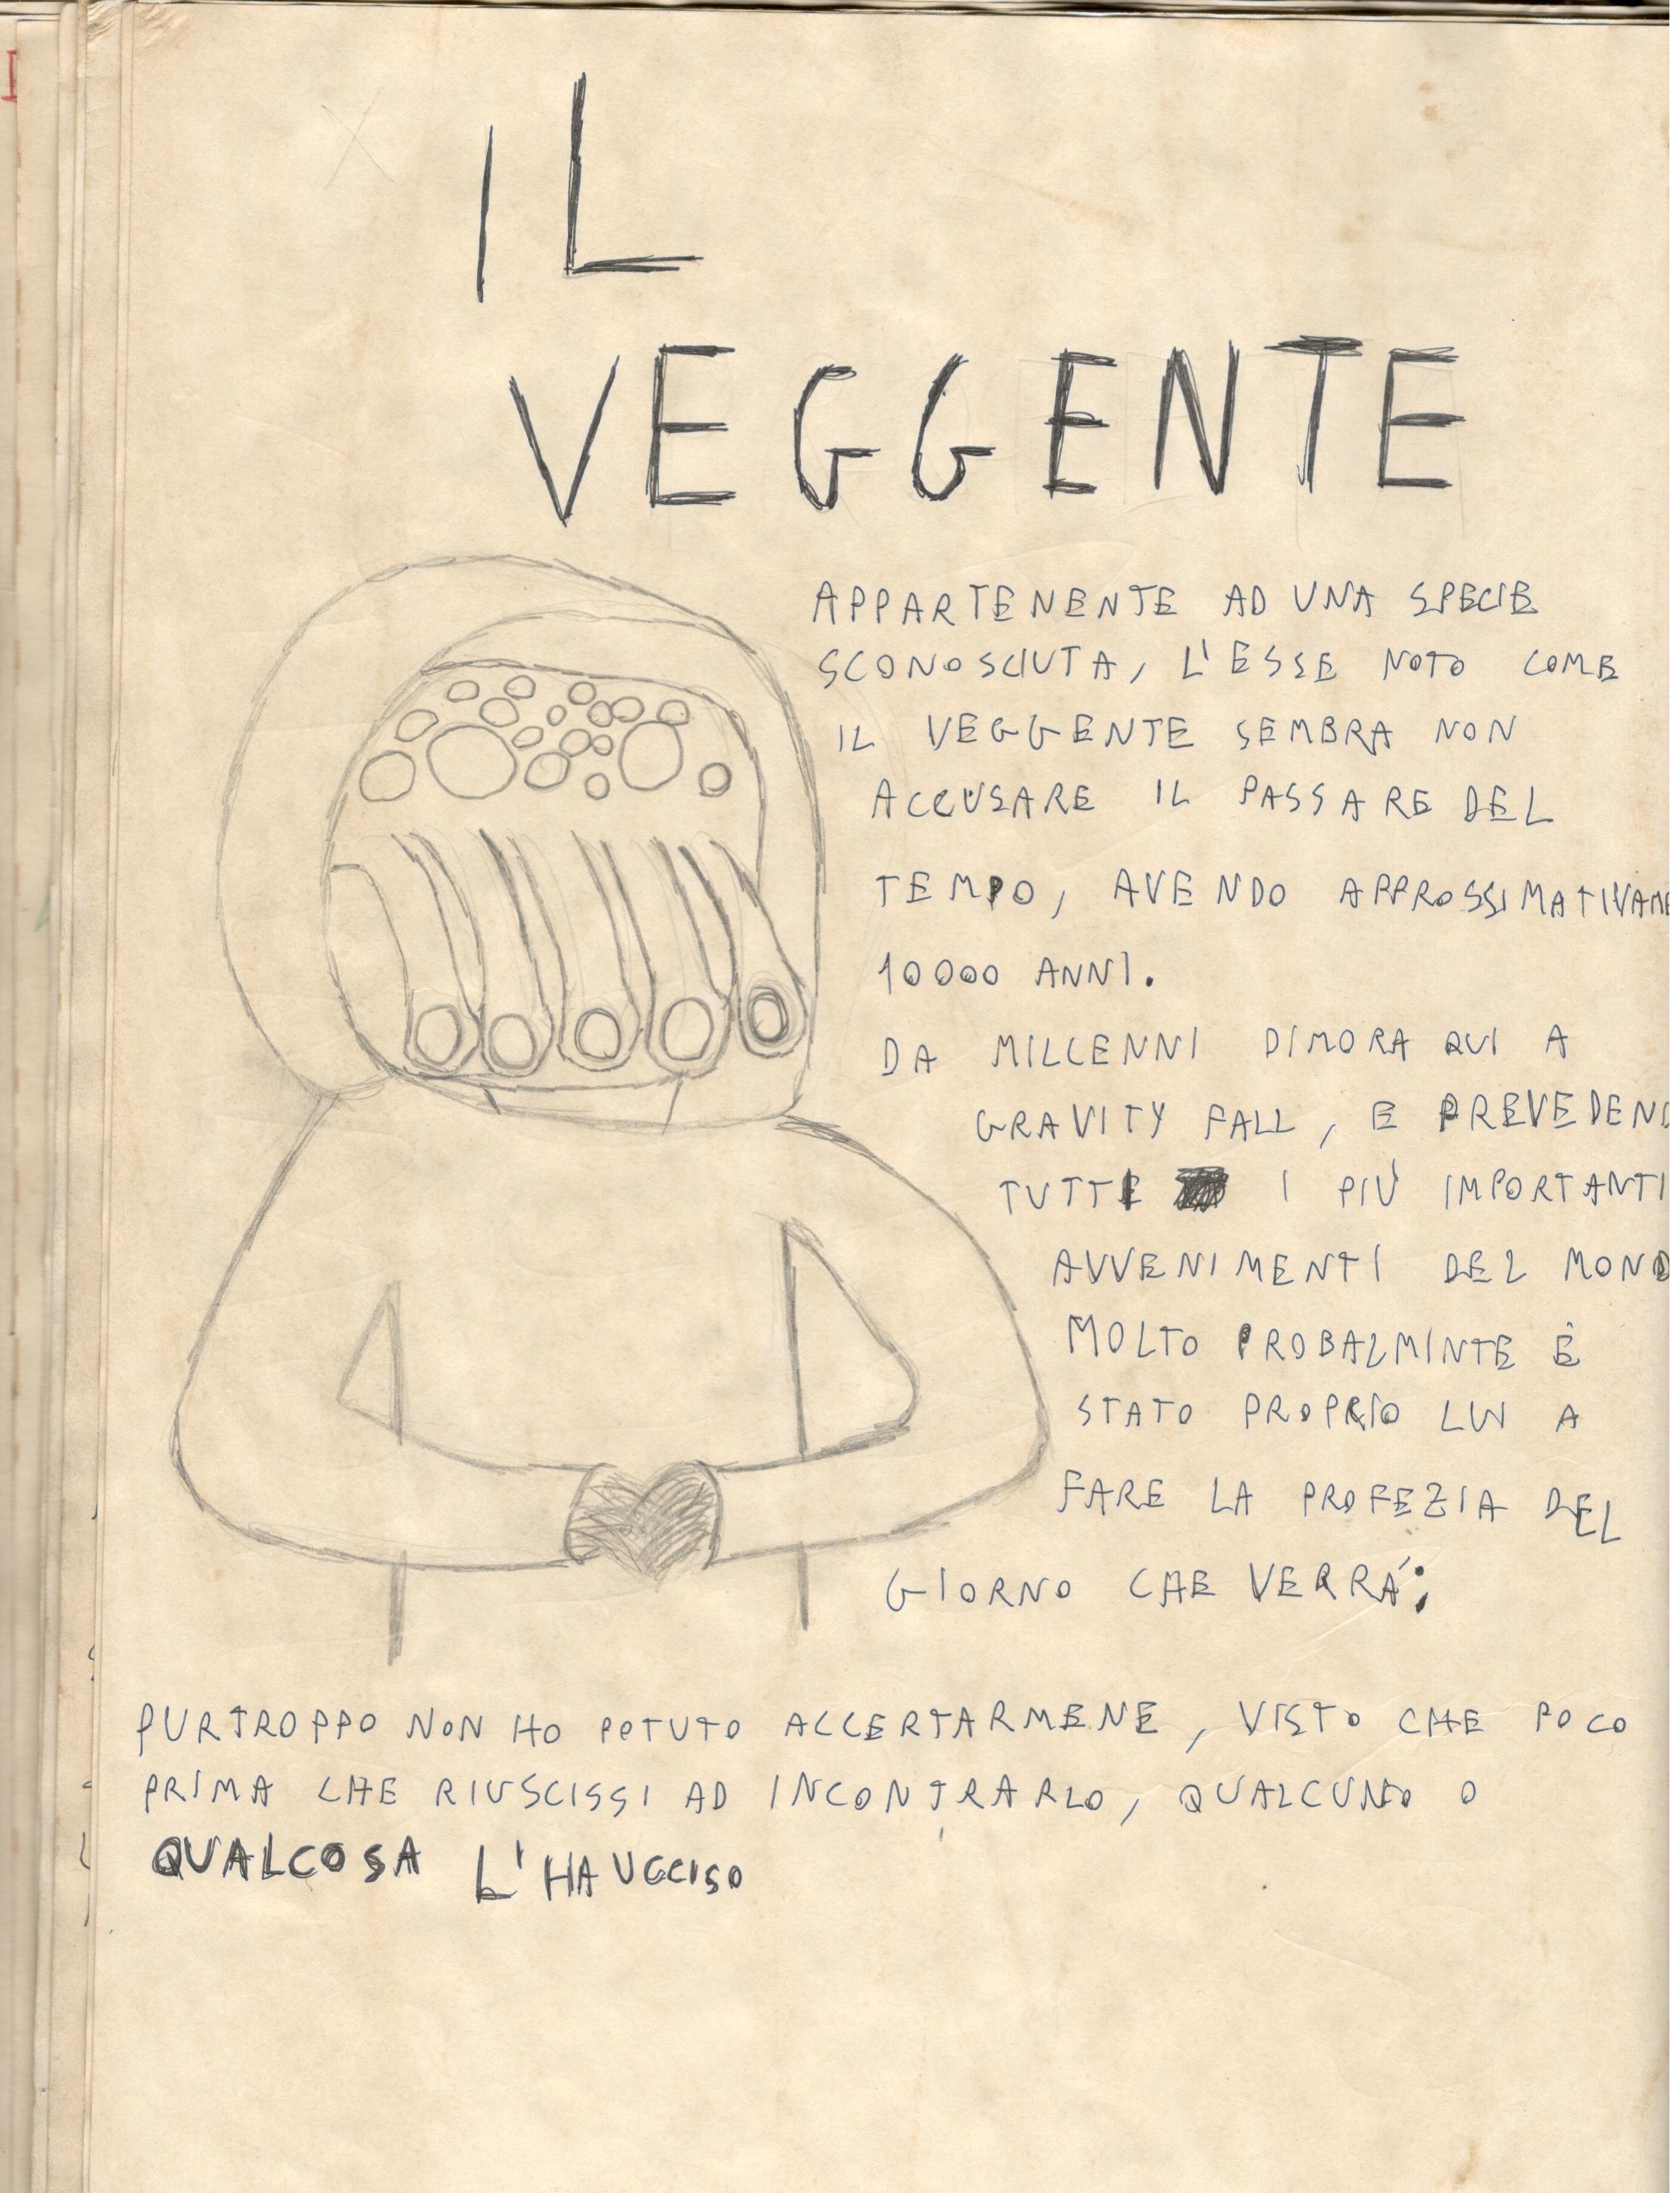 IL
VEGGENTE
APPARTENENTE AD UNA SPECIE
SCONOSCIUTA, L'ESSE NOTO COME
IL VEGGENTE SEMBRA NON
ACCUSARE IL PASSARE DEL
TEMPO, AVENDO APPROSSIMATIVAME
10000 ANNI.
DA MILLENNI DIMORA QUI A
GRAVITY FALL, E PREVEDEND
TUTTI I PIÙ IMPORTANTI
AVVENIMENTI DEL MONDO
MOLTO PROBALMINTE È
STATO PROPRIO LUI A
FARE LA PROFEZIA DEL
GIORNO CHE VERRÁ;
PURTROPPO NON HO POTUTO ACCERTARMENE, VISTO CHE POCO
PRIMA CHE RIUSCISSI AD INCONTRARLO, QUALCUNO O
QUALCOSA L'HA UCCISO